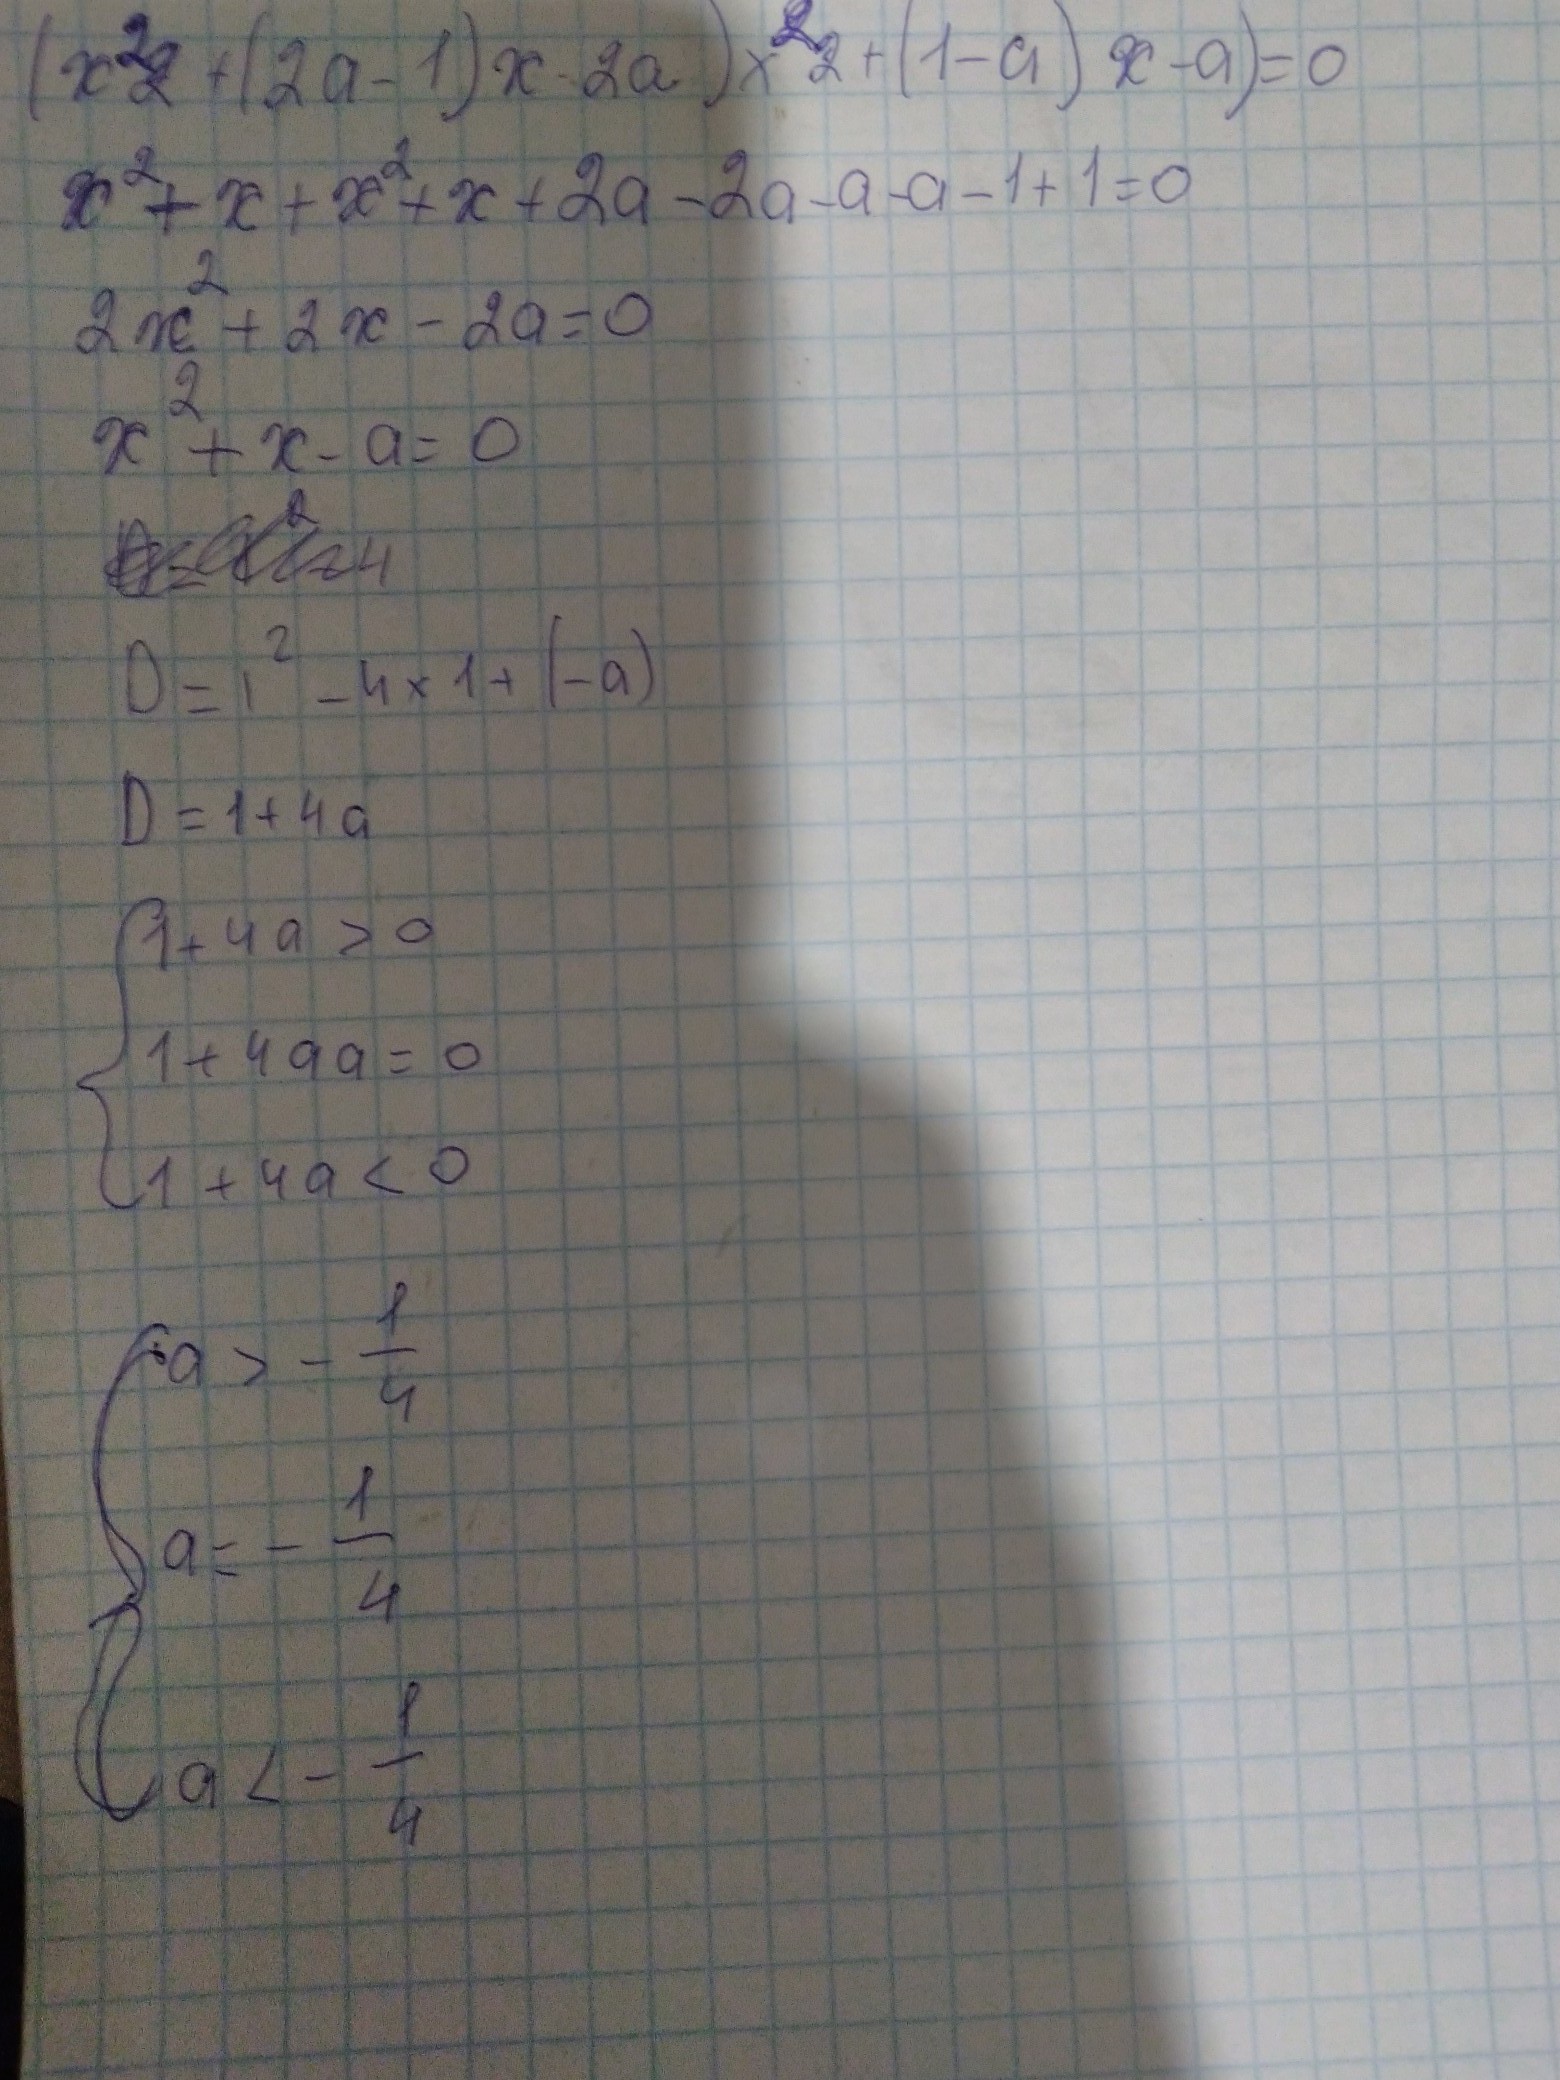 (x²2 + (2a - 1) x - 2a) x²2 + (1 - a) x - a) = 0
x² + x + x² + x + 2a - 2a - a - a - 1 + 1 = 0
2x² + 2x - 2a = 0
x² + x - a = 0
D = 1² - 4 × 1 + (-a)
D = 1 + 4a
1 + 4a > 0
1 + 4aa = 0
1 + 4a < 0
a > - 1/4
a = - 1/4
a < - 1/4